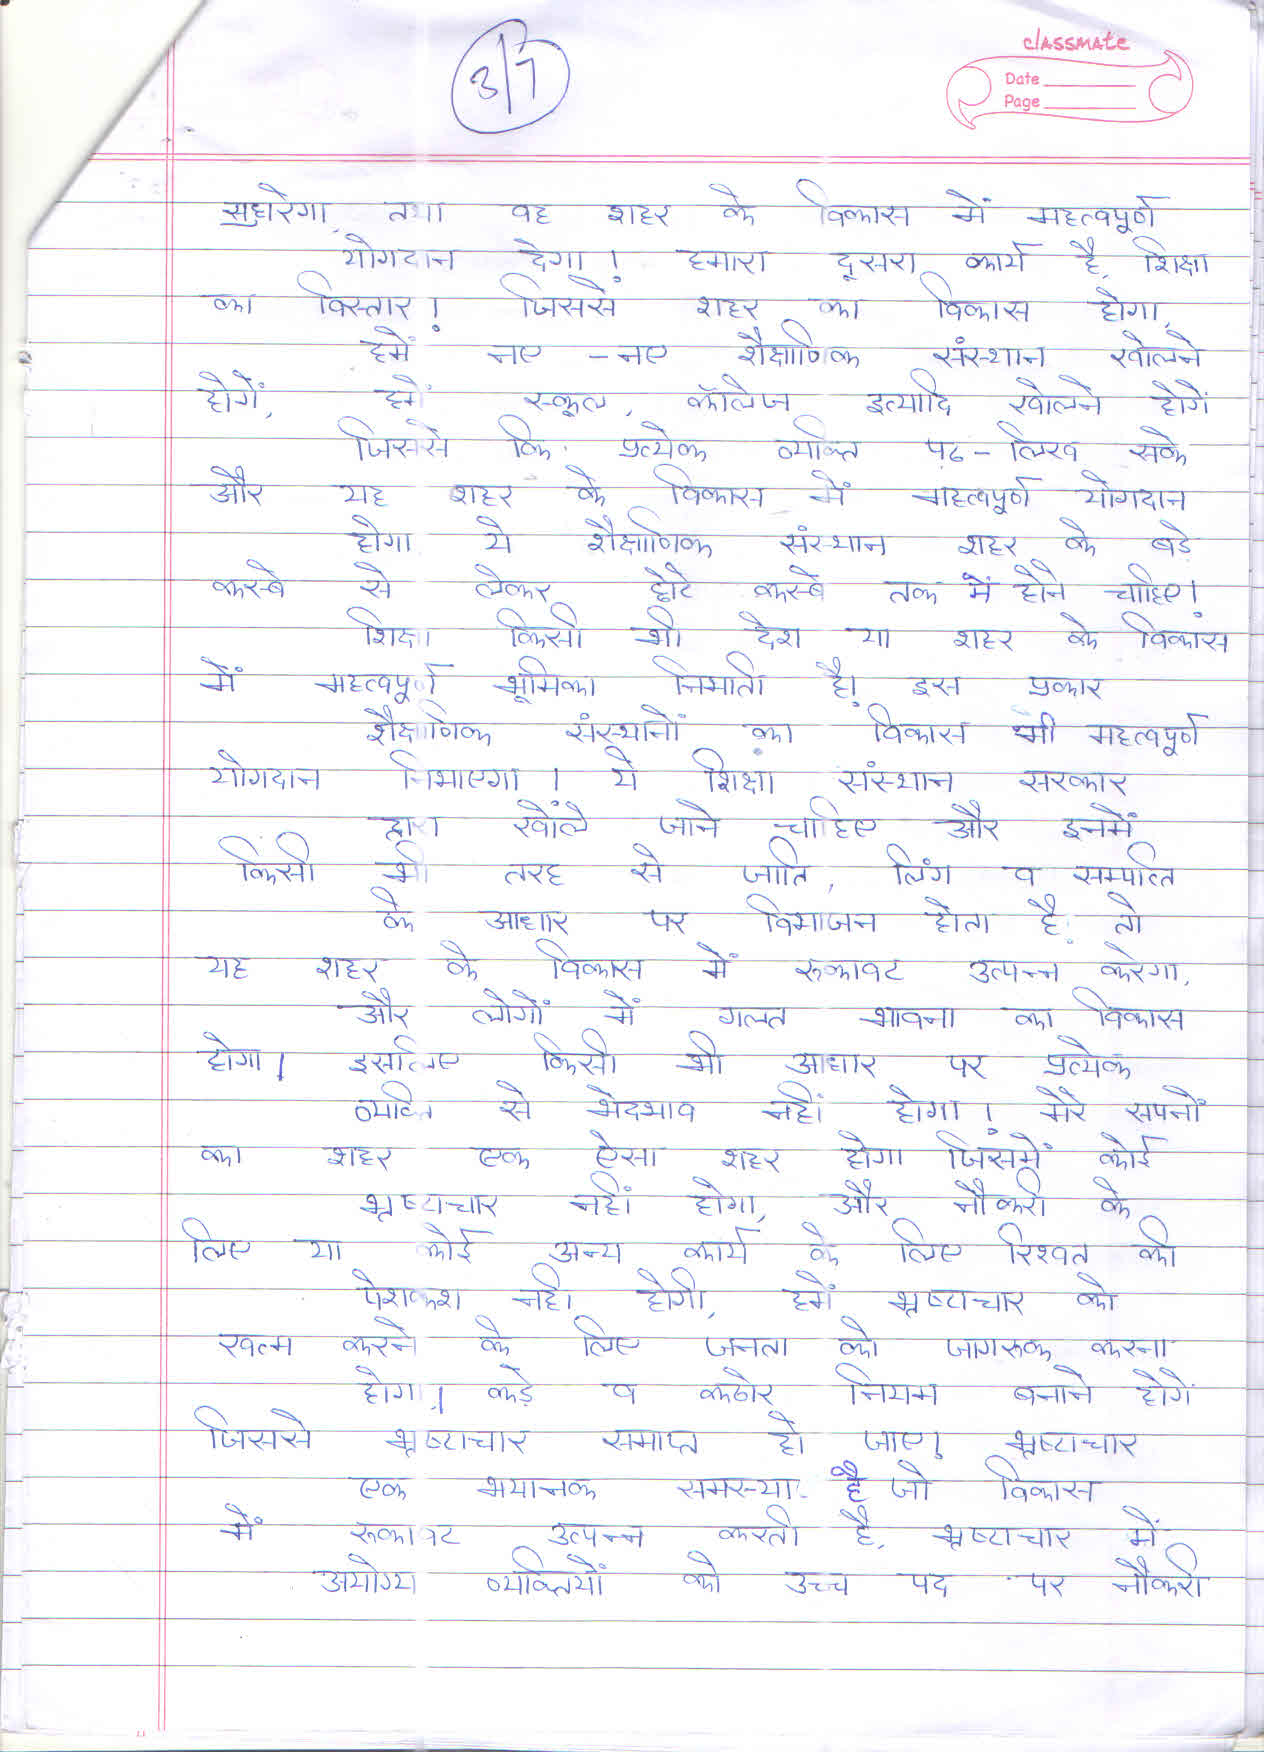 3/7
classmate
Date
Page
सुधरेगा, तथा वह शहर के विकास में महत्वपूर्ण
योगदान देगा। हमारा दूसरा कार्य है, शिक्षा
का विस्तार। जिससे शहर का विकास होगा,
हमें नए -नए शैक्षाणिक संस्थान खोलने
होगें, हमें स्कूल, कॉलेज इत्यादि खोलने होगें
जिससे कि प्रत्येक व्यक्ति पढ-लिख सके
और यह शहर के विकास में महत्वपूर्ण योगदान
होगा ये शैक्षाणिक संस्थान शहर के बडे
कस्बे से लेकर छोटे कस्बे तक में होने चाहिए।
शिक्षा किसी भी देश या शहर के विकास
में महत्वपूर्ण भूमिका निभाती है। इस प्रकार
शैक्षाणिक संस्थानों का विकास भी महत्वपूर्ण
योगदान निभाएगा। ये शिक्षा संस्थान सरकार
द्वारा खोले जाने चाहिए और इनमें
किसी भी तरह से जाति, लिंग व सम्पत्ति
के आधार पर विभाजन होता है, तो
यह शहर के विकास में रुकावट उत्पन्न करेगा,
और लोगों में गलत भावना का विकास
होगा। इसलिए किसी भी आधार पर प्रत्येक
व्यक्ति से भेदभाव नहीं होगा। मेरे सपनों
का शहर एक ऐसा शहर होगा जिसमें कोई
भ्रष्टाचार नहीं होगा, और नौकरी के
लिए या कोई अन्य कार्य के लिए रिश्वत की
पेशकश नही होगी, हमें भ्रष्टाचार को
खत्म करने के लिए जनता को जागरुक करना
होगा। कड़े व कठोर नियम बनाने होगें
जिससे भ्रष्टाचार समाप्त हो जाए। भ्रष्टाचार
एक भयानक समस्या है जो विकास
में रुकावट उत्पन्न करती है, भ्रष्टाचार में
अयोग्य व्यक्तियों को उच्च पद पर नौकरी